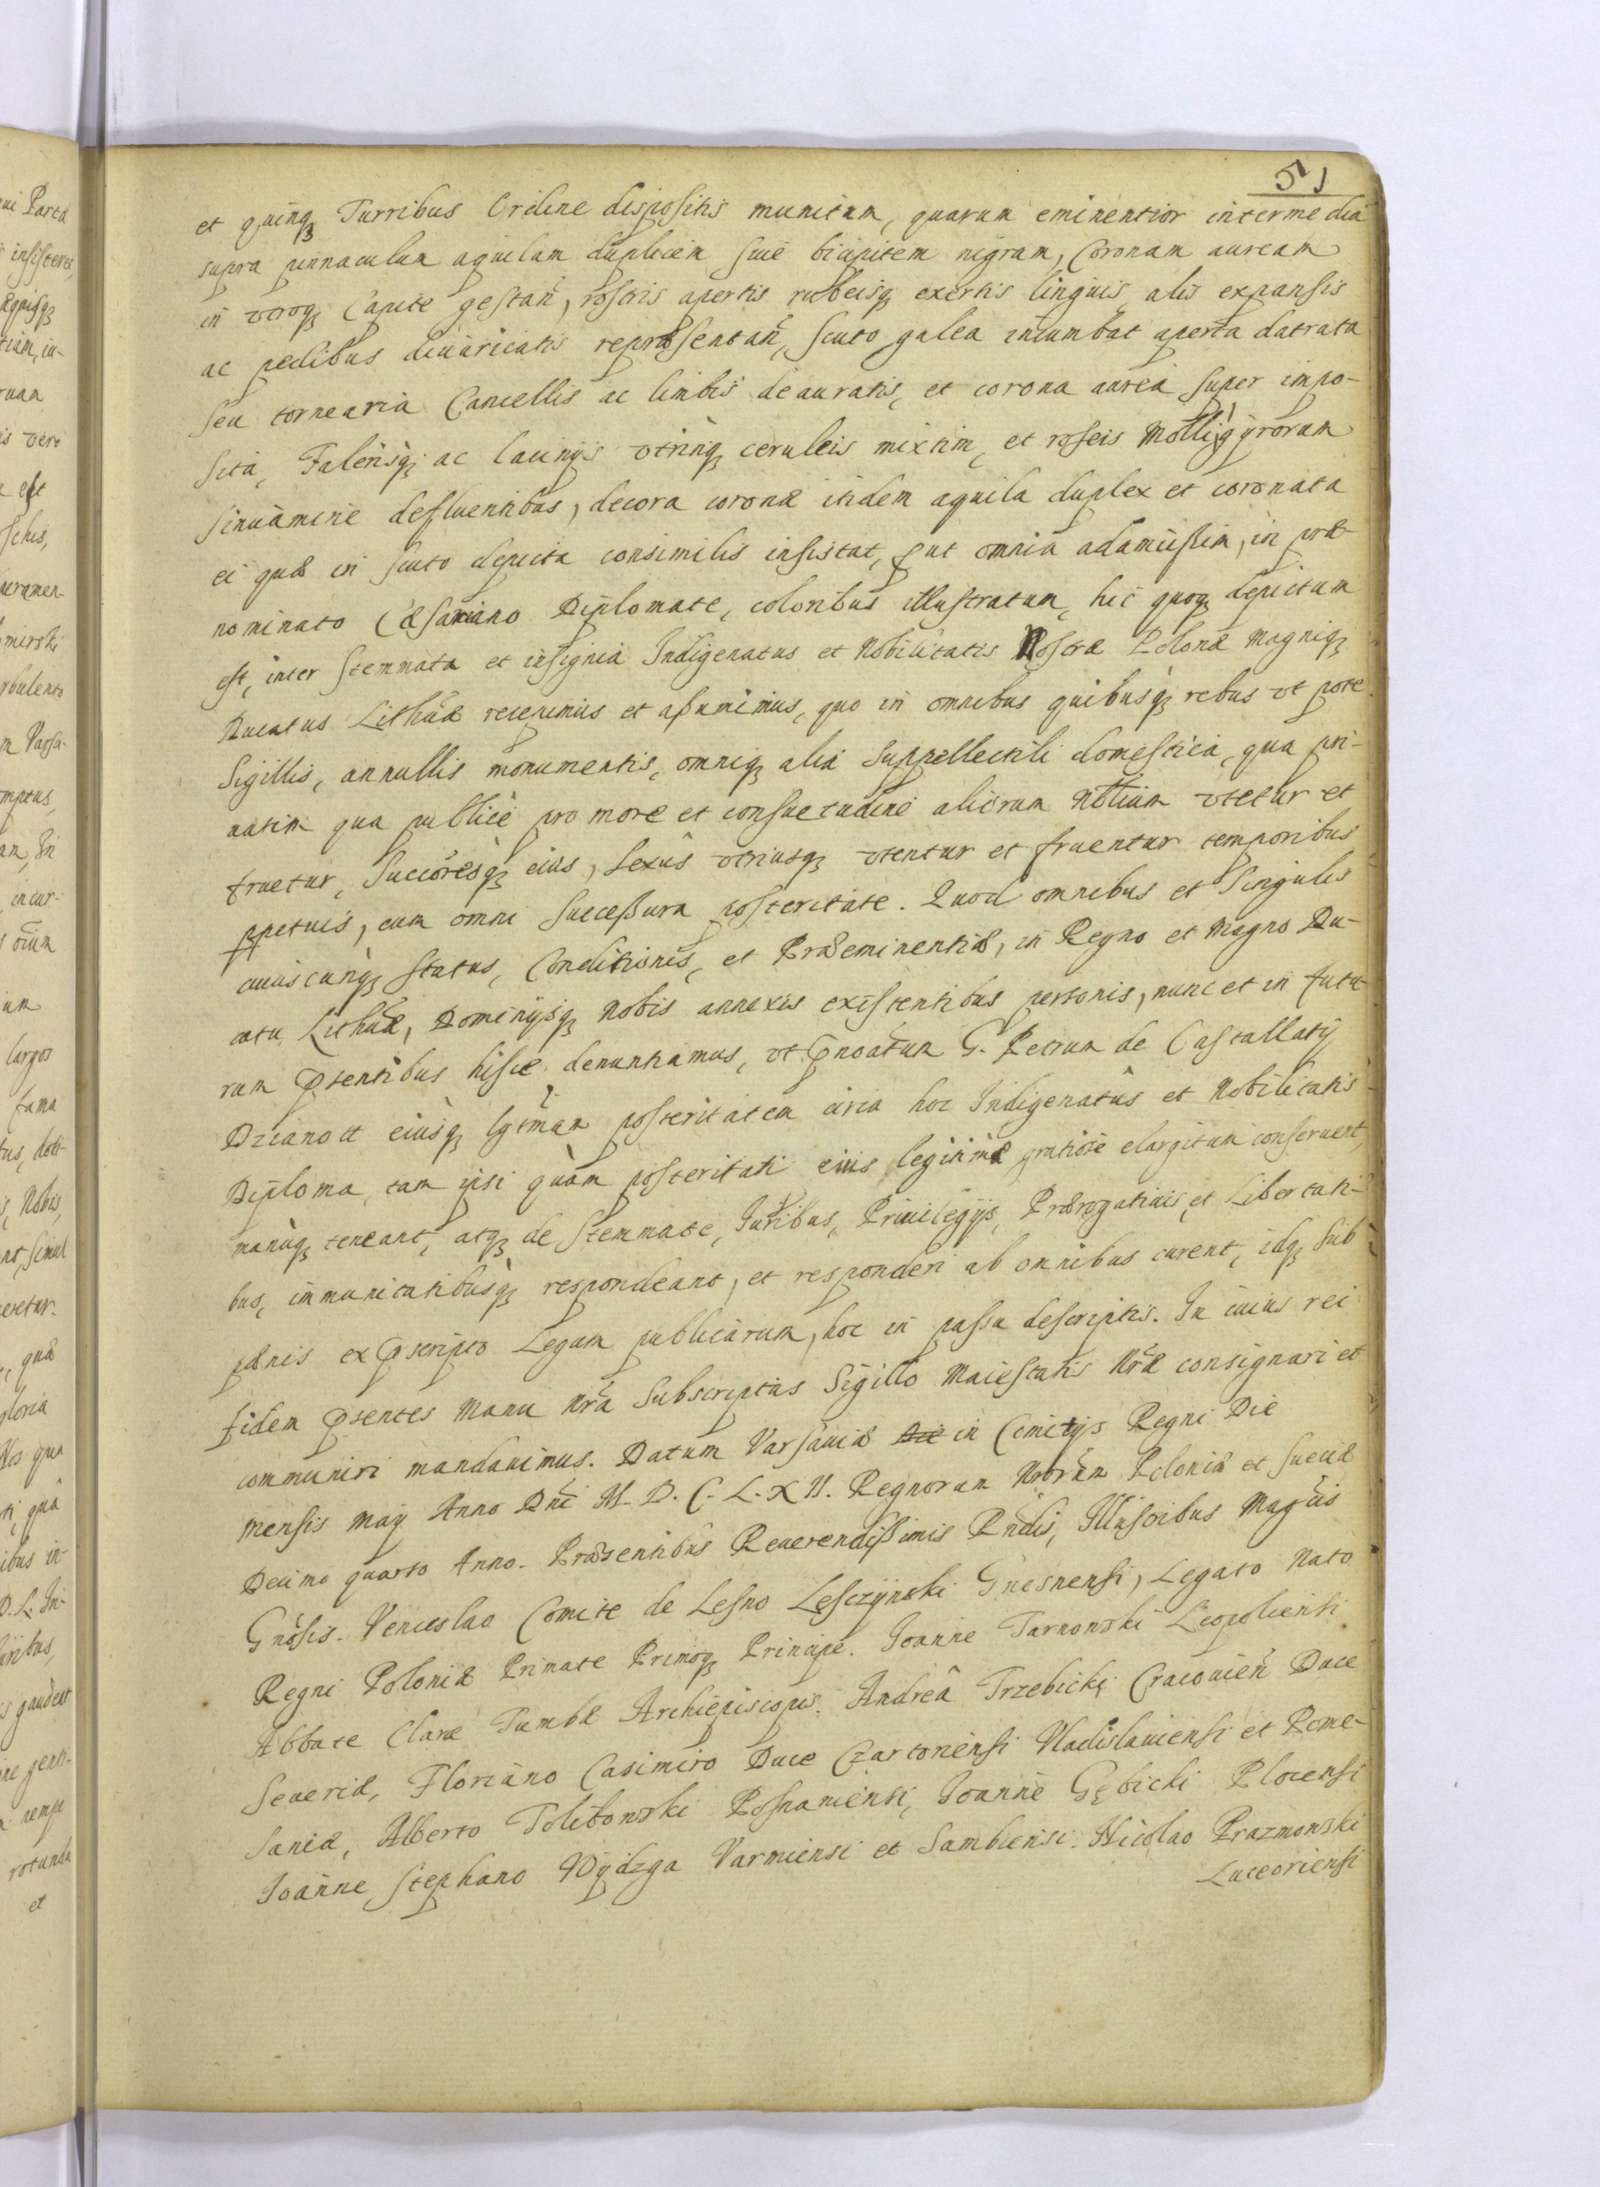 51
et quinq₃ Turribus Ordine dispositis munitum, quarum eminentior intermedia
supra pinnaculum aquilam duplicem sive bicipitem nigram, Coronam auream
in vtroq₃ Capite gestan̄, rostris apertis rubeisq₃ exertis linguis alis expansis
ac pedibus divaricatis repræsentan̄, scuto galea incumbat aperta clatrata
seu tornearia Cancellis ac limbis deauratis, et corona aurea super impo-
sita, Falerisq₃ ac lacinijs vtrinq₃ ceruleis mixtim, et roseis Molliq₃ gyrorum
sinuamine defluentibus, decora coronæ itidem aquila duplex et coronata
ei quæ in scuto depicta consimilis insistat, put omnia adamussim, in præ-
nominato Cæsareano Diplomate, coloribus illustratum, hic quoq₃ depictum
est, inter Stemmata et insignia Indigenatus et Nobilitatis Nostræ Polonæ Magniq₃
Ducatus Lithuæ recepimus et assumimus, quo in omnibus quibusq₃ rebus vt pote
Sigillis, annullis monumentis, omniq₃ alia suppellectili domestica, qua pri-
uatim qua publicè pro more et consuetudine aliorum Nbtium vtetur et
fruetur, Succōresq₃ eius, sexûs vtriusq₃ vtentur et fruentur temporibus
ppetuis, cum omni successura posteritate. Quod omnibus et Singulis
cuiuscunq₃ Status, Conditionis, et Præeminentiæ, in Regno et Magno Du-
catu Lithuæ, Dominijsq₃ Nobis annexis existentibus personis, nunc et in futu-
rum psentibus hisce denuntiamus, vt pnoatum G. Petrum de Castallatij
Dzianott eiusq₃ lgtmam posteritatem circa hoc Indigenatûs et Nobilitatis
Diploma, tam ipsi quàm posteritati eius legitimæ gratiosè elargitum conseruent,
manuq₃ teneant, atq₃ de Stemmate, Iuribus, Priuilegijs, Prærogatiuis, et Libertati-
bus, immunitatibusq₃ respondeant, et responderi ab omnibus curent, idq₃ sub
pænis ex pscripto Legum publicarum, hoc in passu descriptis. In cuius rei
fidem psentes Manu Nrā Subscriptas Sigillo Maiestatis Nræ consignari et
communiri mandauimus. Datum Varsauiæ Die in Comitijs Regni Die
Mensis May Anno Dn̄i M. D. C. L. X II. Regnorum Nrorum Poloniæ et Sueciæ
Decimo quarto Anno. Præsentibus Reuerendissimis Rn̄dis, Illustribus Magcis
Gnōsis. Venceslao Comite de Lesno Lesczynski Gnesnensi, Legato Nato
Regni Poloniæ Primate Primoq₃ Principe. Ioanne Tarnowski Leopoliensi
Abbate Claræ Tumbæ Archiepiscopis. Andreâ Trzebicki Cracouien̄ Duce
Seueriæ, Floriano Casimiro Duce Czartoriensi Vladislauiensi et Pome-
saniæ, Alberto Tolibowski Posnaniensi, Ioanne Gębicki Plocensi
Ioanne Stephano Wydzga Varmiensi et Sambiensi. Nicolao Prazmowski
Luceoriensi